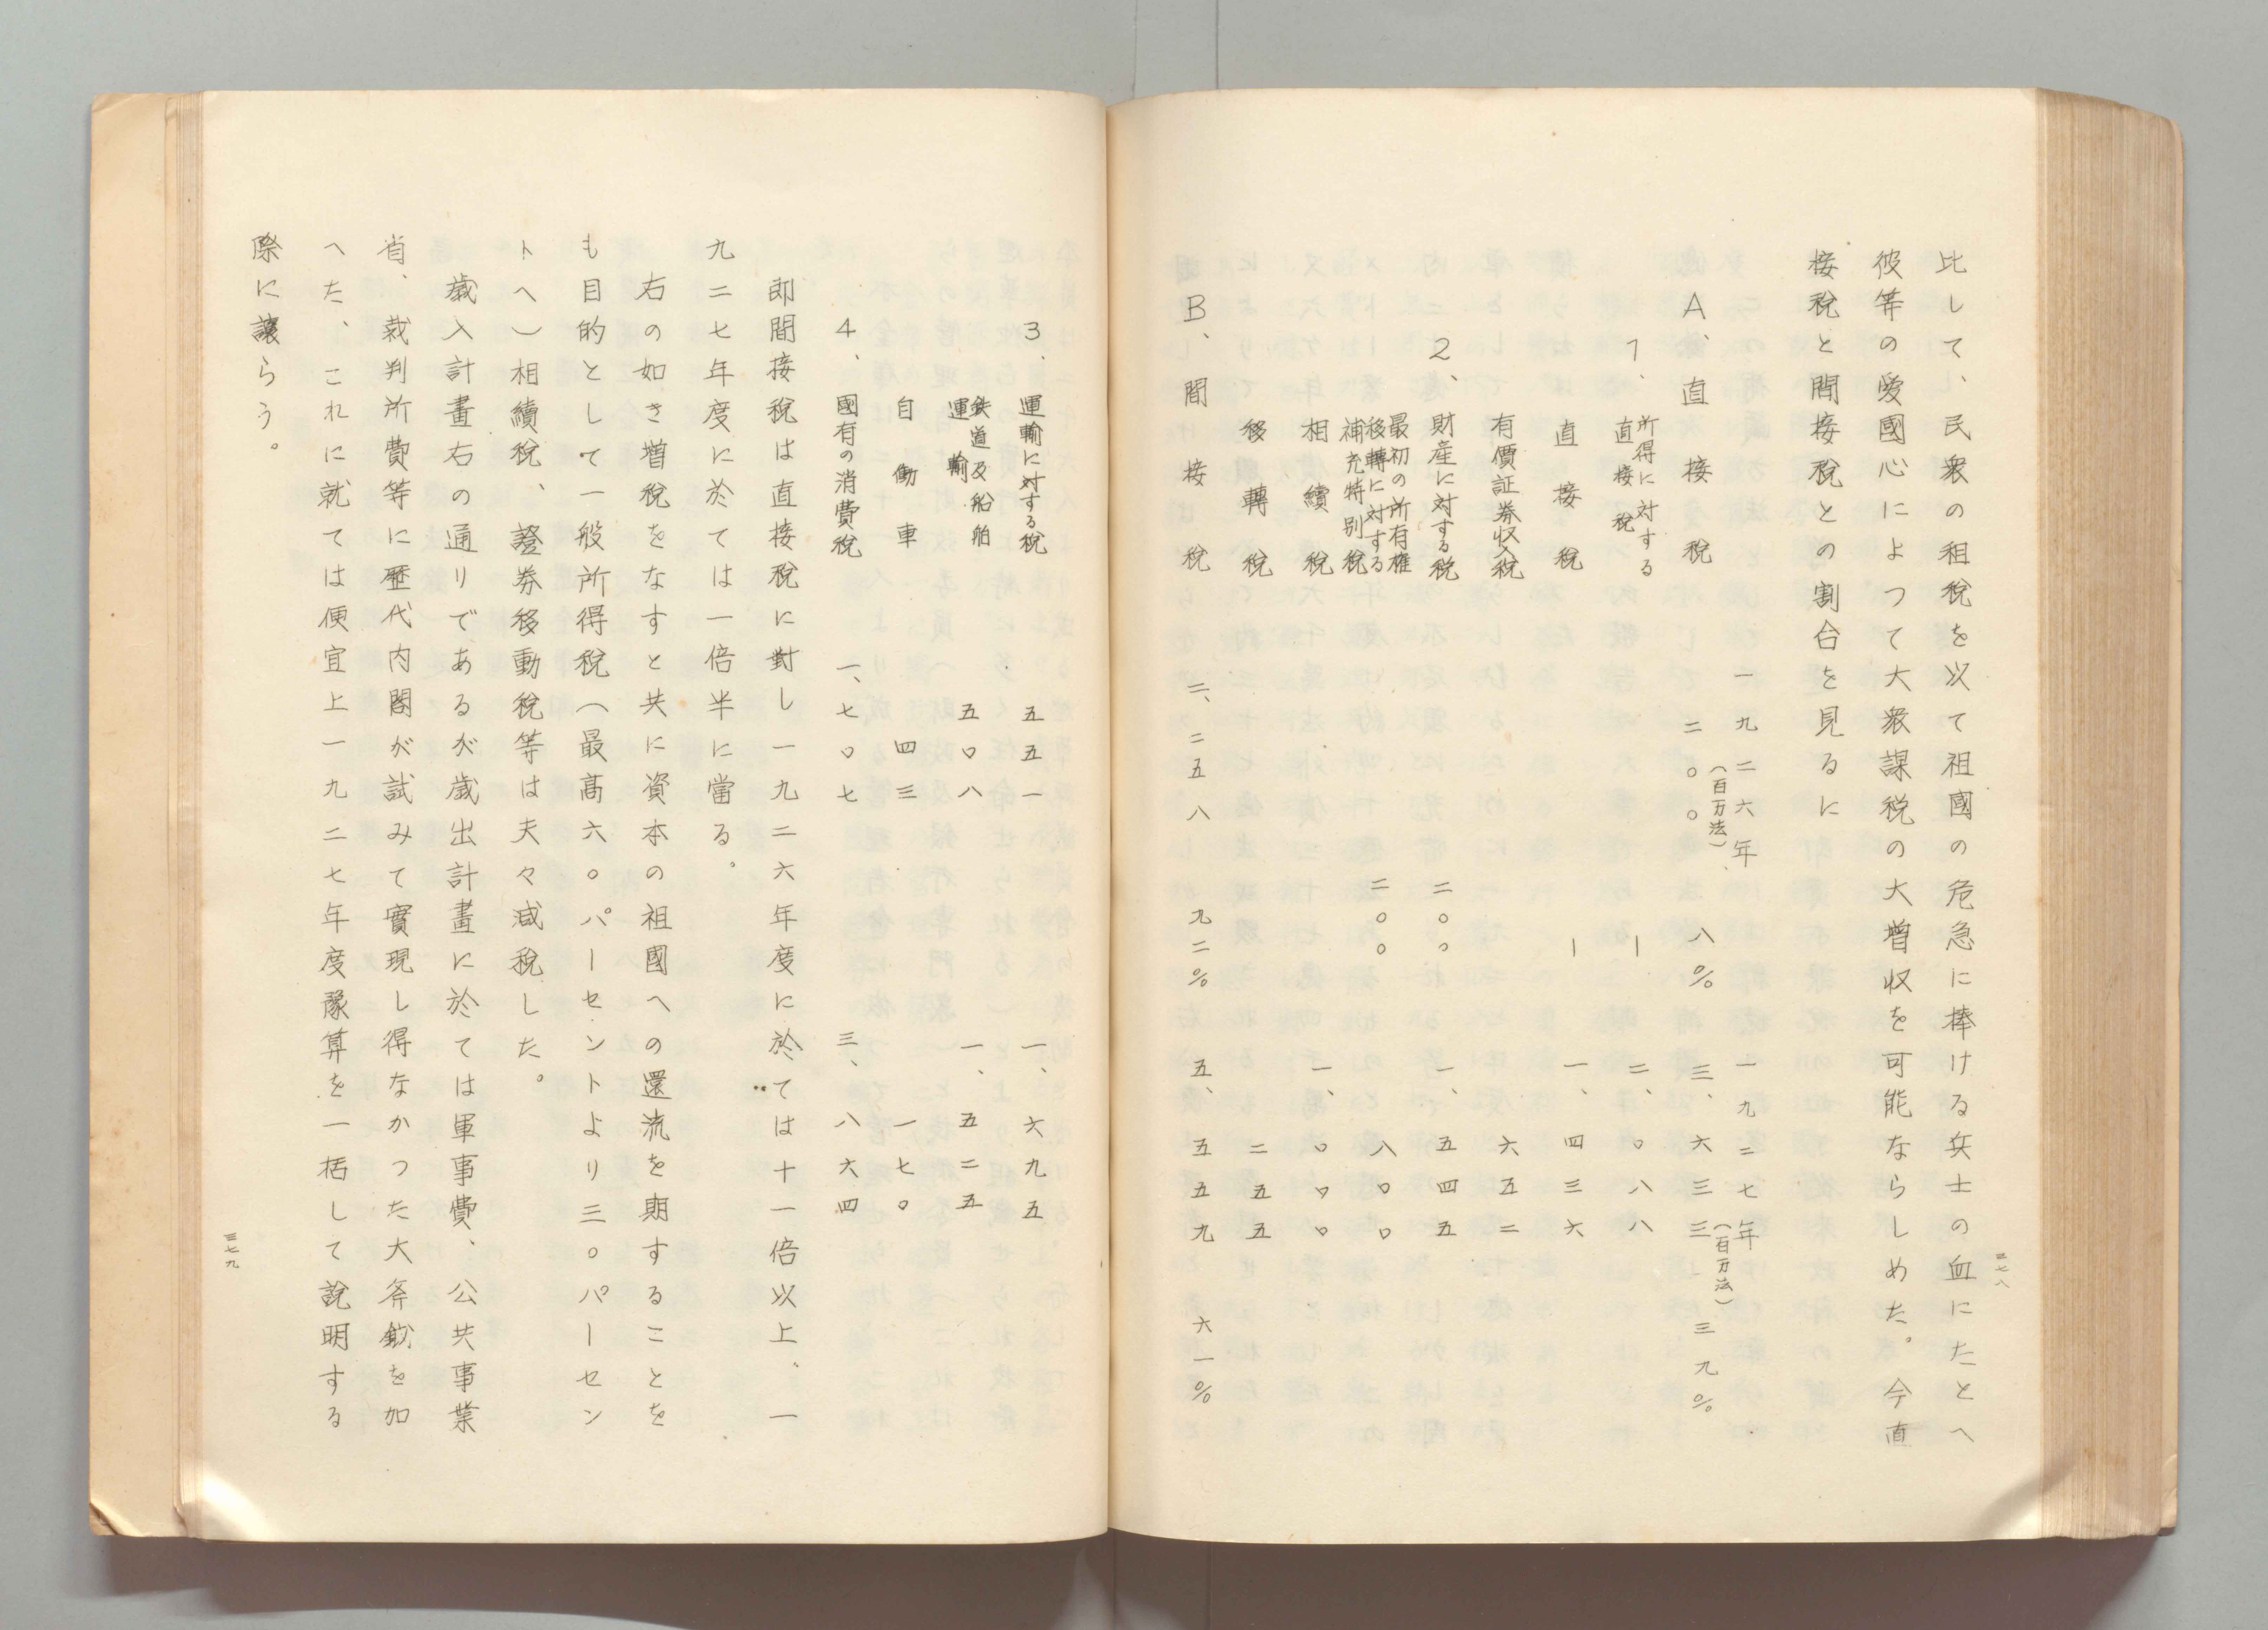 三七八
比して、民衆の租税を以て祖國の危急に捧ける兵士の血にたとへ
彼等の愛國心によつて大衆課税の大増収を可能ならしめた。今直
接税と間接税との割合を見るに
一九二六年 一九二七年
(百万法) (百万法)
A、直接税 二〇〇 八% 三、六三三 三九%
1、所得に対する
直接税 ー 二、〇八八
直接税 ー 一、四三六
有價証券収入税 六五二
2、財産に対する税 二〇〇 一、五四五
最初の所有権
移轉に対する 二〇〇 八〇〇
補充特別税
相續税 一、〇〇〇
移轉税 二五五
B、間接税 二、二五八 九二% 五、五五九 六一%
3、運輸に対する税 五五一 一、六九五
鉄道及船舶
運輸 五〇八 一、五二五
自働車 四三 一七〇
4、國有の消費税 一、七〇七 三、八六四
即間接税は直接税に對し一九二六年度に於ては十一倍以上、一
九二七年度に於ては一倍半に當る。
右の如き増税をなすと共に資本の祖國への還流を期することを
も目的として一般所得税(最高六〇パーセントより三〇パーセン
トへ)相續税、證券移動税等は夫々減税した。
歳入計畫右の通りであるが歳出計畫に於ては軍事費、公共事業
省、裁判所費等に歴代内閣が試みて實現し得なかつた大斧鉞を加
へた、これに就ては便宜上一九二七年度豫算を一括して説明する
際に譲らう。
三七九